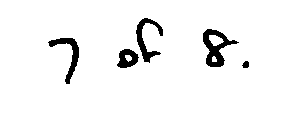 7 of 8.